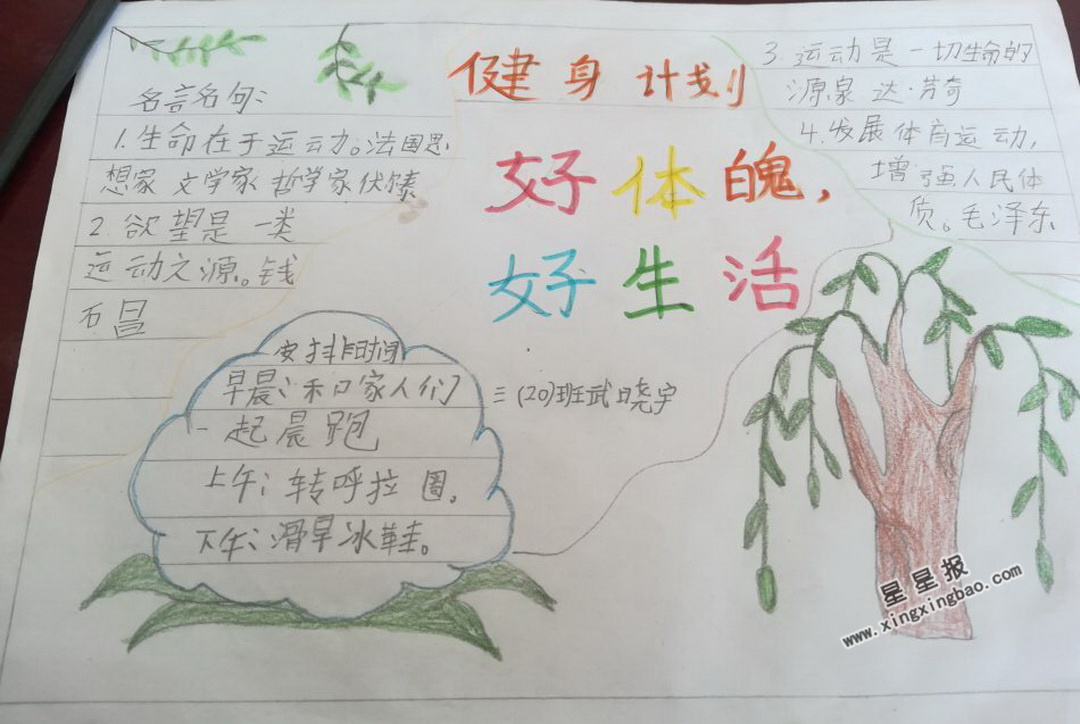 健身计划
好体魄，
好生活
名言名句：
1.生命在于运动。法国思
想家 文学家 哲学家伏尔泰
2.欲望是一类
运动之源。钱
石昌
3.运动是一切生命的
源泉 达·芬奇
4.发展体育运动，
增强人民体
质。毛泽东
安排时间
早晨：和家人们
一起晨跑
上午：转呼拉圈。
下午：滑旱冰鞋。
三(20)班武晓宇
星星报
www.xingxingbao.com